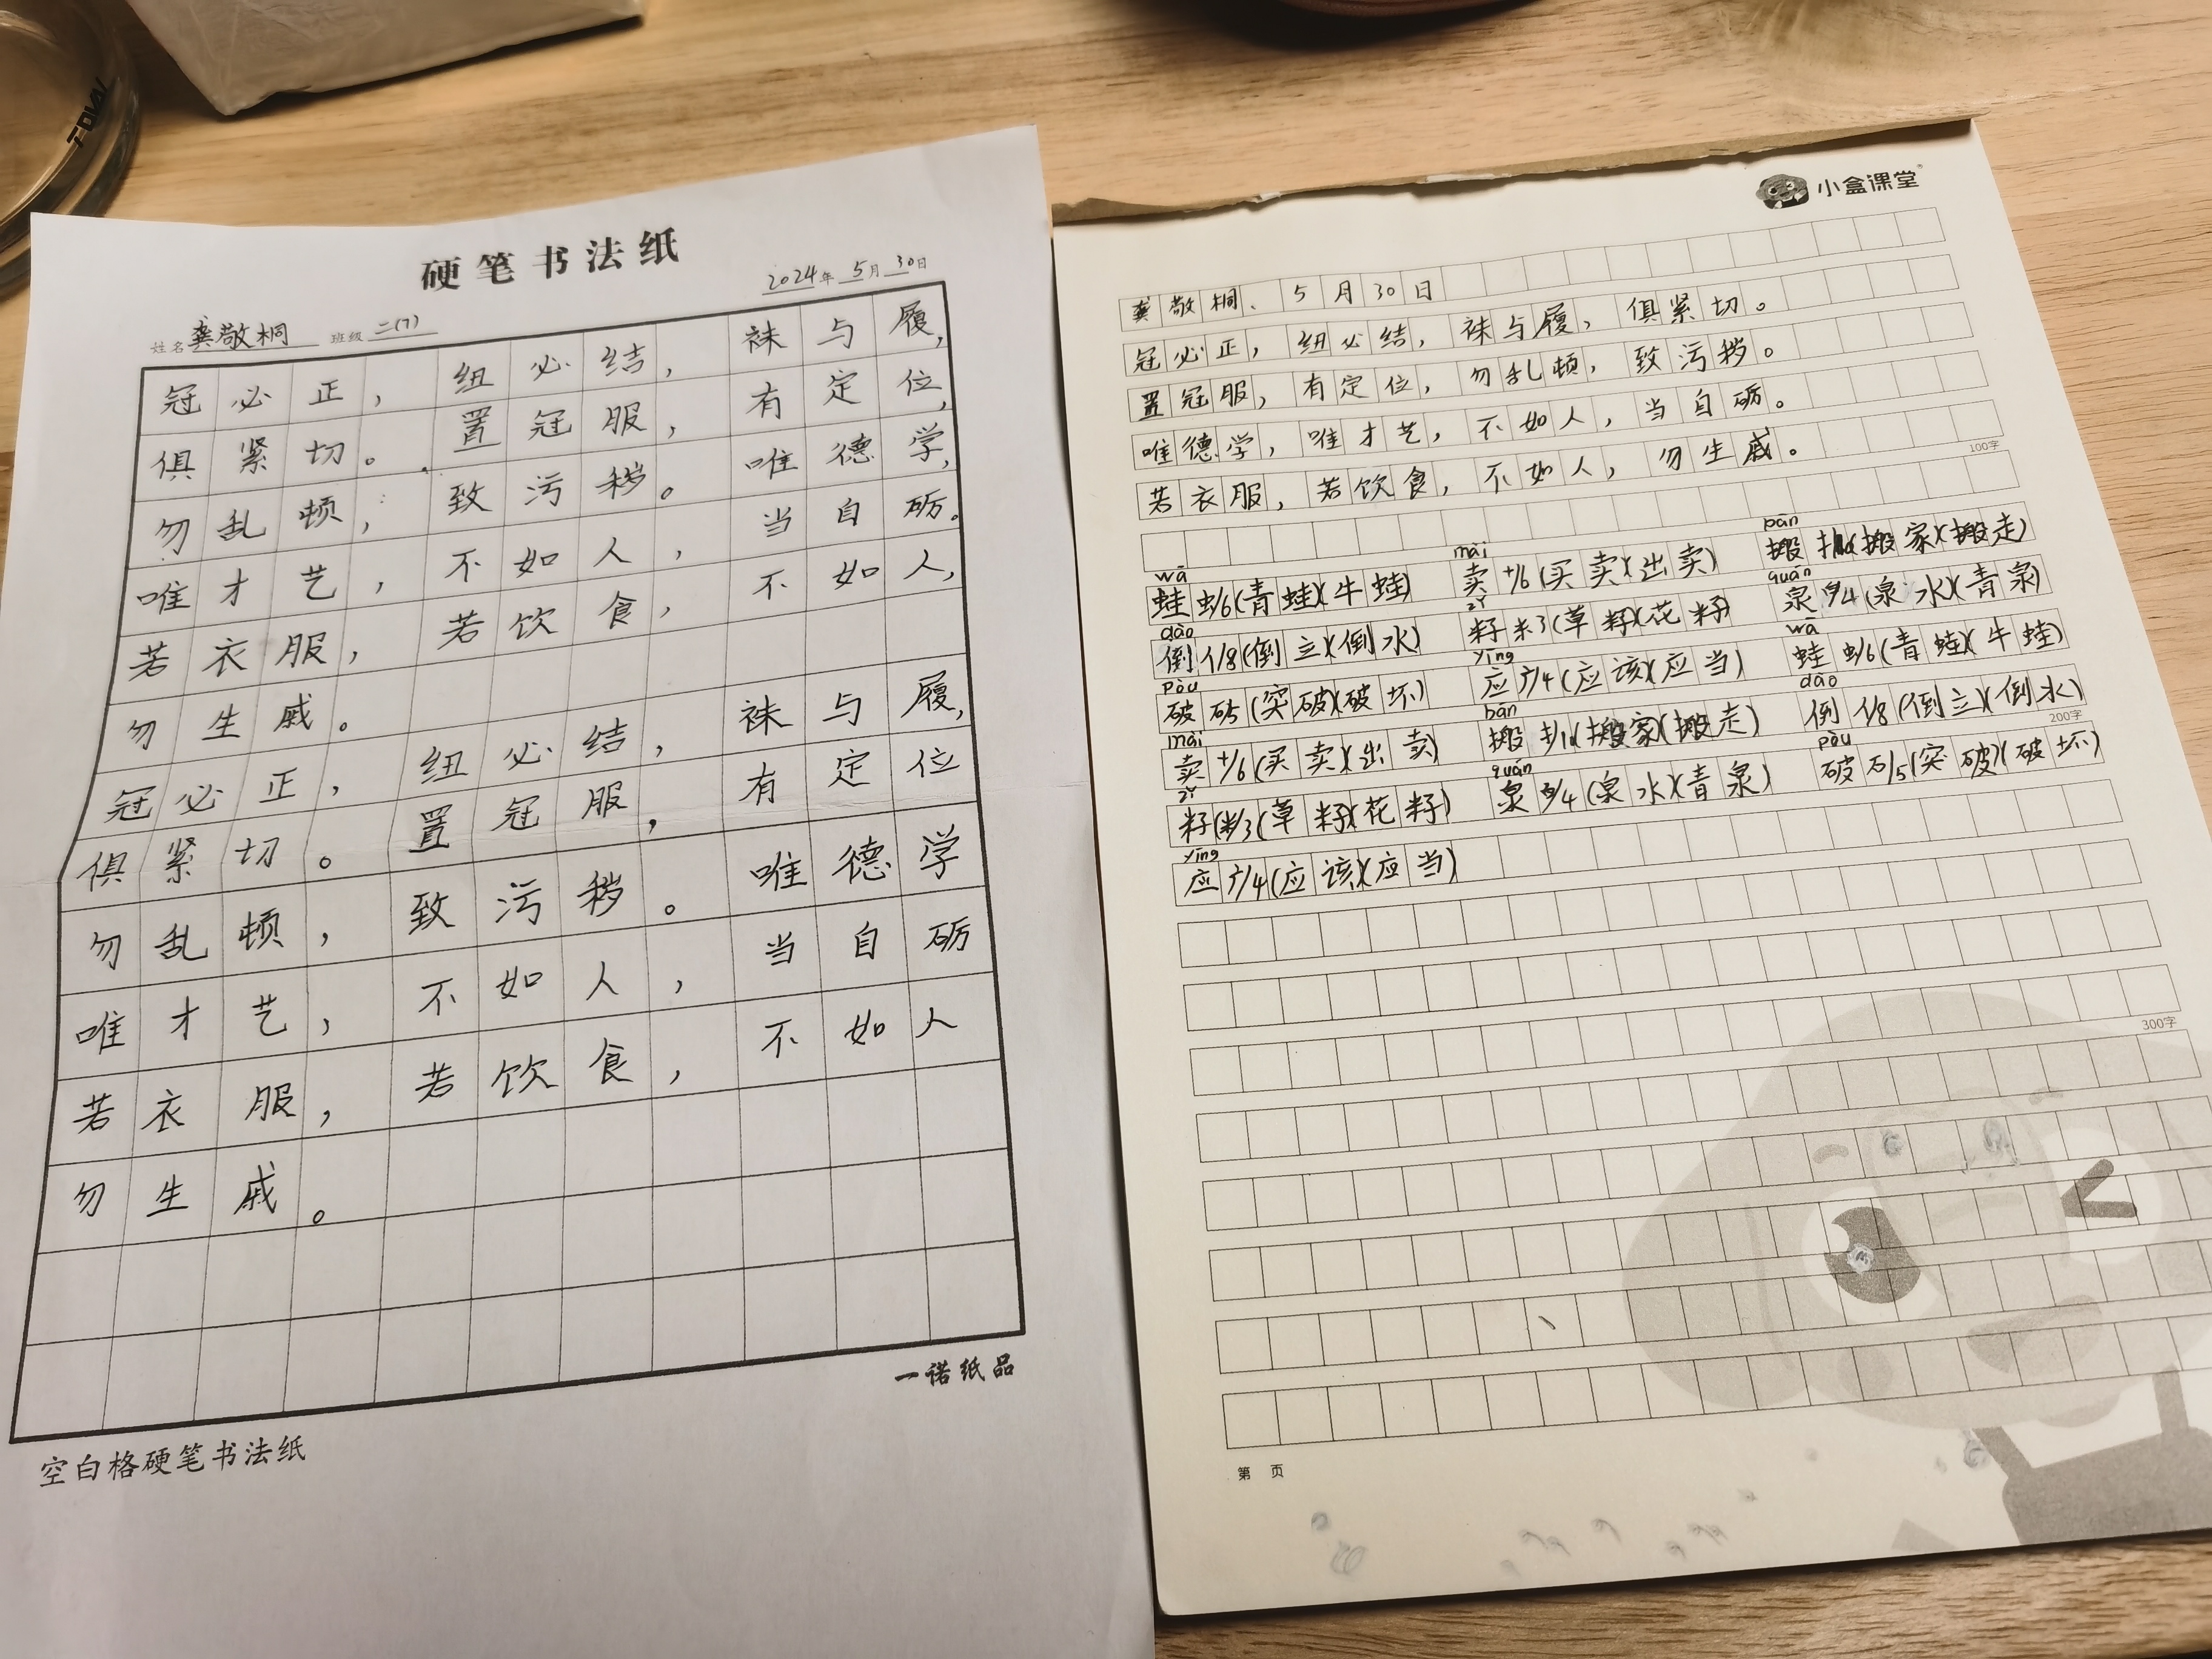 TOVAI
硬笔书法纸
2024年5月30日
姓名 龚敬桐 班级 二(7)
冠必正，纽必结，袜与履，
俱紧切。置冠服，有定位，
勿乱顿，致污秽。唯德学，
唯才艺，不如人，当自砺。
若衣服，若饮食，不如人，
勿生戚。
冠必正，纽必结，袜与履，
俱紧切。置冠服，有定位
勿乱顿，致污秽。唯德学
唯才艺，不如人，当自砺
若衣服，若饮食，不如人
勿生戚。
一诺纸品
空白格硬笔书法纸
小盒课堂
龚敬桐、5月30日
冠必正，纽必结，袜与履，俱紧切。
置冠服，有定位，勿乱顿，致污秽。
唯德学，唯才艺，不如人，当自砺。
100字
若衣服，若饮食，不如人，勿生戚。
wā mài bān
蛙 虫/6(青蛙)(牛蛙) 卖 十/6(买卖)(出卖) 搬 扌/10(搬家)(搬走)
dào zǐ quán
倒 亻/8(倒立)(倒水) 籽 米3(草籽)(花籽) 泉 白/4(泉水)(青泉)
pòu yīng wā
破 石5(突破)(破坏) 应 广/4(应该)(应当) 蛙 虫/6(青蛙)(牛蛙)
mài bān dào
卖 十/6(买卖)(出卖) 搬 扌/10(搬家)(搬走) 倒 亻/8(倒立)(倒水)
200字
zǐ quán pòu
籽(米/3(草籽)(花籽) 泉 白/4(泉水)(青泉) 破 石/5(突破)(破坏)
yīng
应 广/4(应该)(应当)
300字
第 页